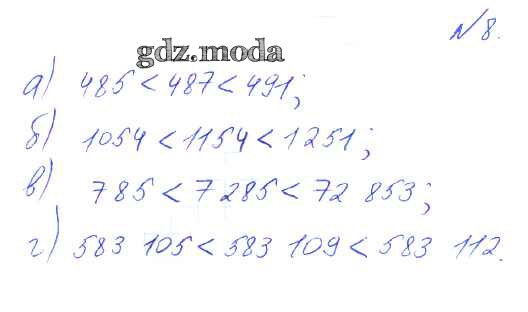 № 8.
gdz.moda
а) 485 < 487 < 491;
б) 1054 < 1154 < 1251;
в) 785 < 7 285 < 72 853;
г) 583 105 < 583 109 < 583 112.